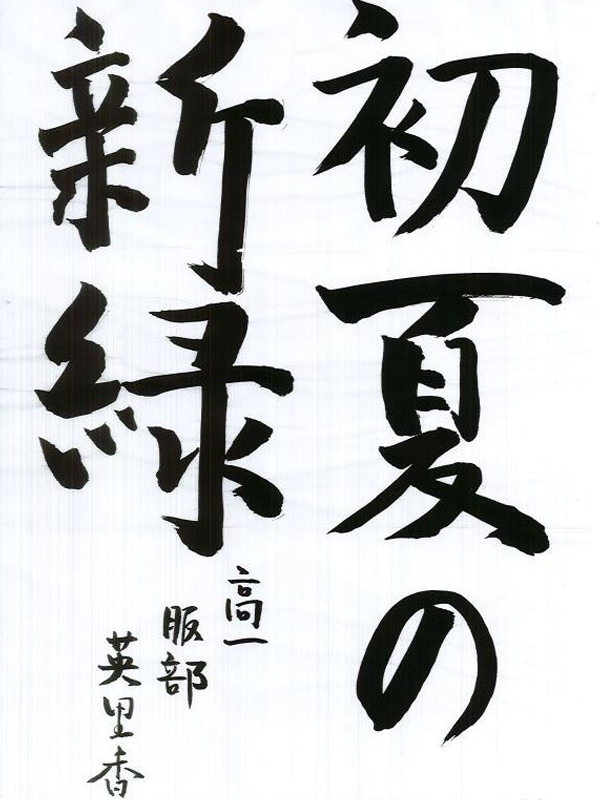 初夏の
新緑
高一
服部
英里香